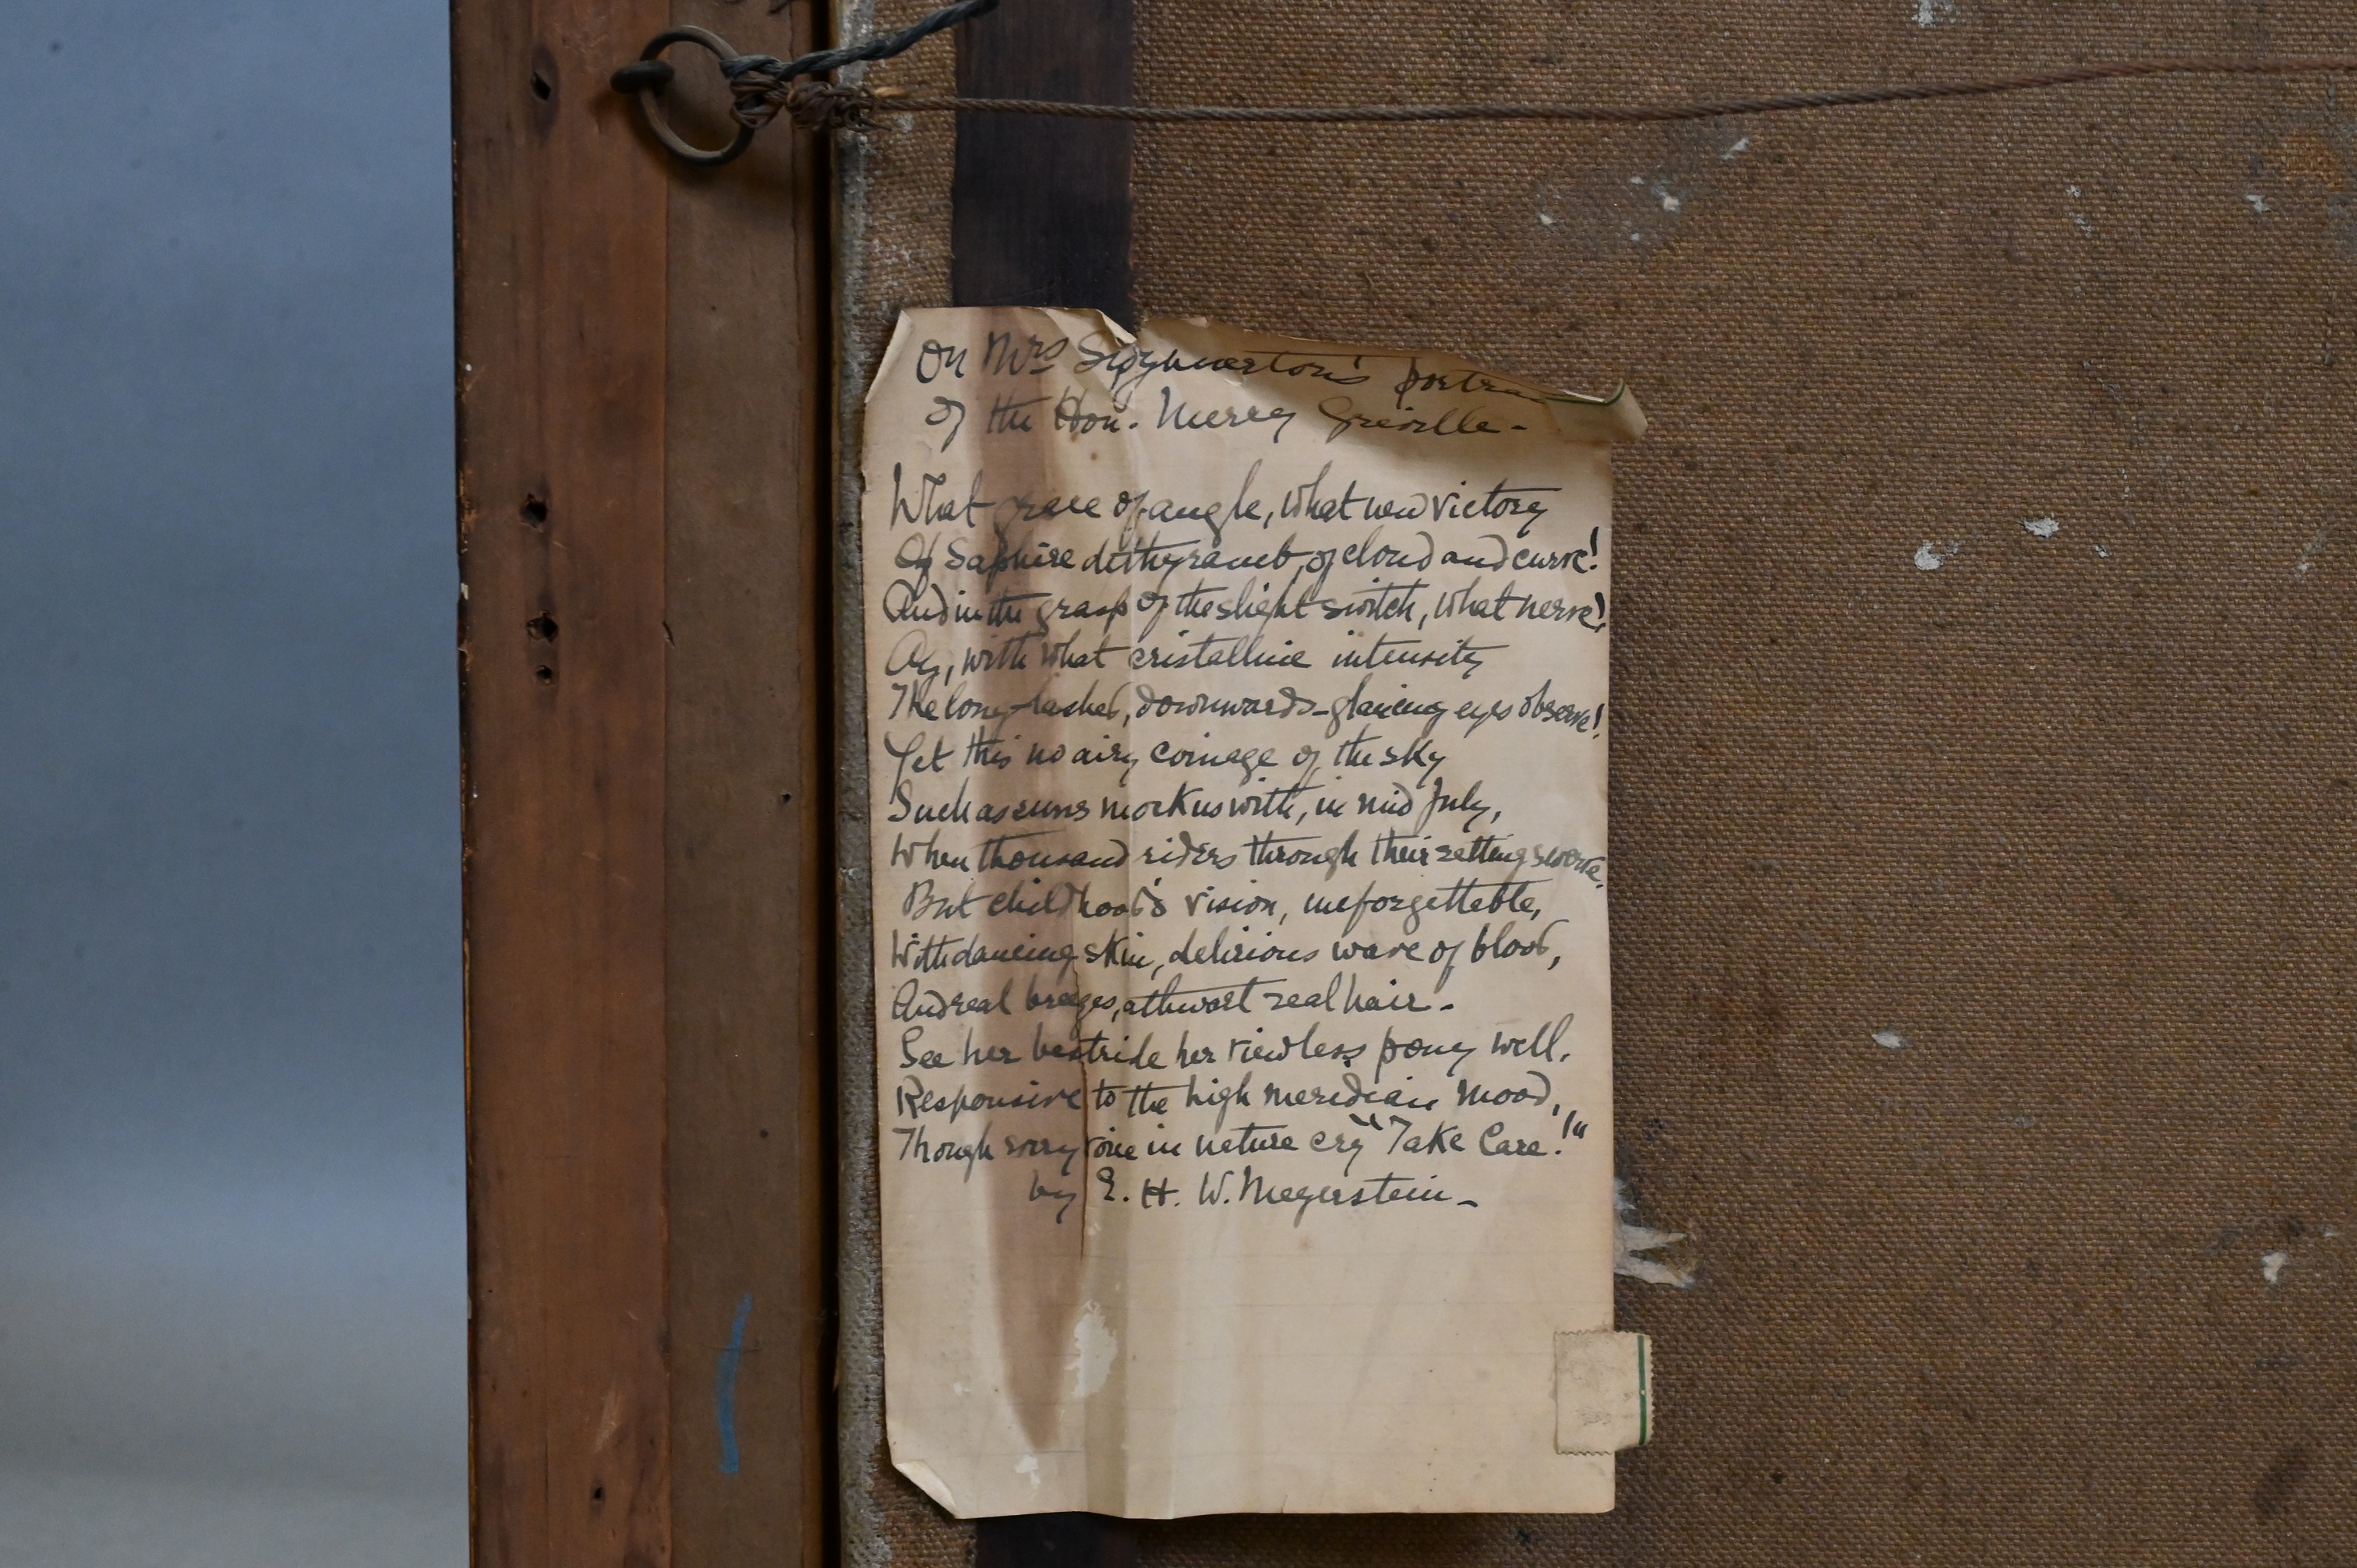 On Mrs Swynnerton's portrait
of the Hon. Mercy Greville -
What grace of angle, what new victory
Of Saphire dithyramb, of cloud and curve!
And in the grasp of the slight switch, what nerve!
Ay, with what cristalline intensity
The long-lashed, downwards-glancing eyes observe!
Yet this no airy coinage of the sky
Such as suns mock us with, in mid July,
When thousand riders through their setting swerve.
But childhood's vision, unforgettable,
With dancing skin, delirious wave of blood,
And real breezes, athwart real hair -
See her bestride her viewless pony well,
Responsive to the high meridian mood,
Though every voice in nature cry "Take Care!"
by E. H. W. Meyerstein -